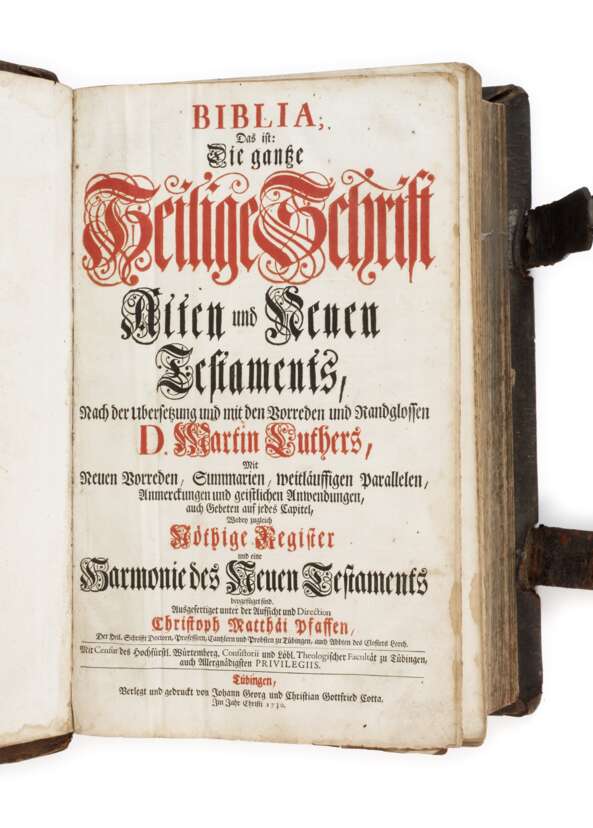 BIBLIA,
Das ist:
Die gantze
Heilige Schrift
Alten und Neuen
Testaments,
Nach der Ubersetzung und mit den Vorreden und Randglossen
D. Martin Luthers,
Mit
Neuen Vorreden, Summarien, weitläuffigen Parallelen,
Anmerckungen und geistlichen Anwendungen,
auch Gebeten auf jedes Capitel,
Wobey zugleich
Nöthige Register
und eine
Harmonie des Neuen Testaments
beygefüget sind.
Ausgefertiget unter der Aufsicht und Direction
Christoph Matthäi Pfaffen,
Der Heil. Schrifft Doctorn, Professorn, Cantzlern und Probsten zu Tübingen, auch Abbten des Closters Lorch.
Mit Censur des Hochfürstl. Würtemberg. Consistorii und Löbl. Theologischer Facultät zu Tübingen,
auch Allergnädigsten PRIVILEGIIS.
Tübingen,
Verlegt und gedruckt von Johann Georg und Christian Gottfried Cotta.
Im Jahr Christi 1730.